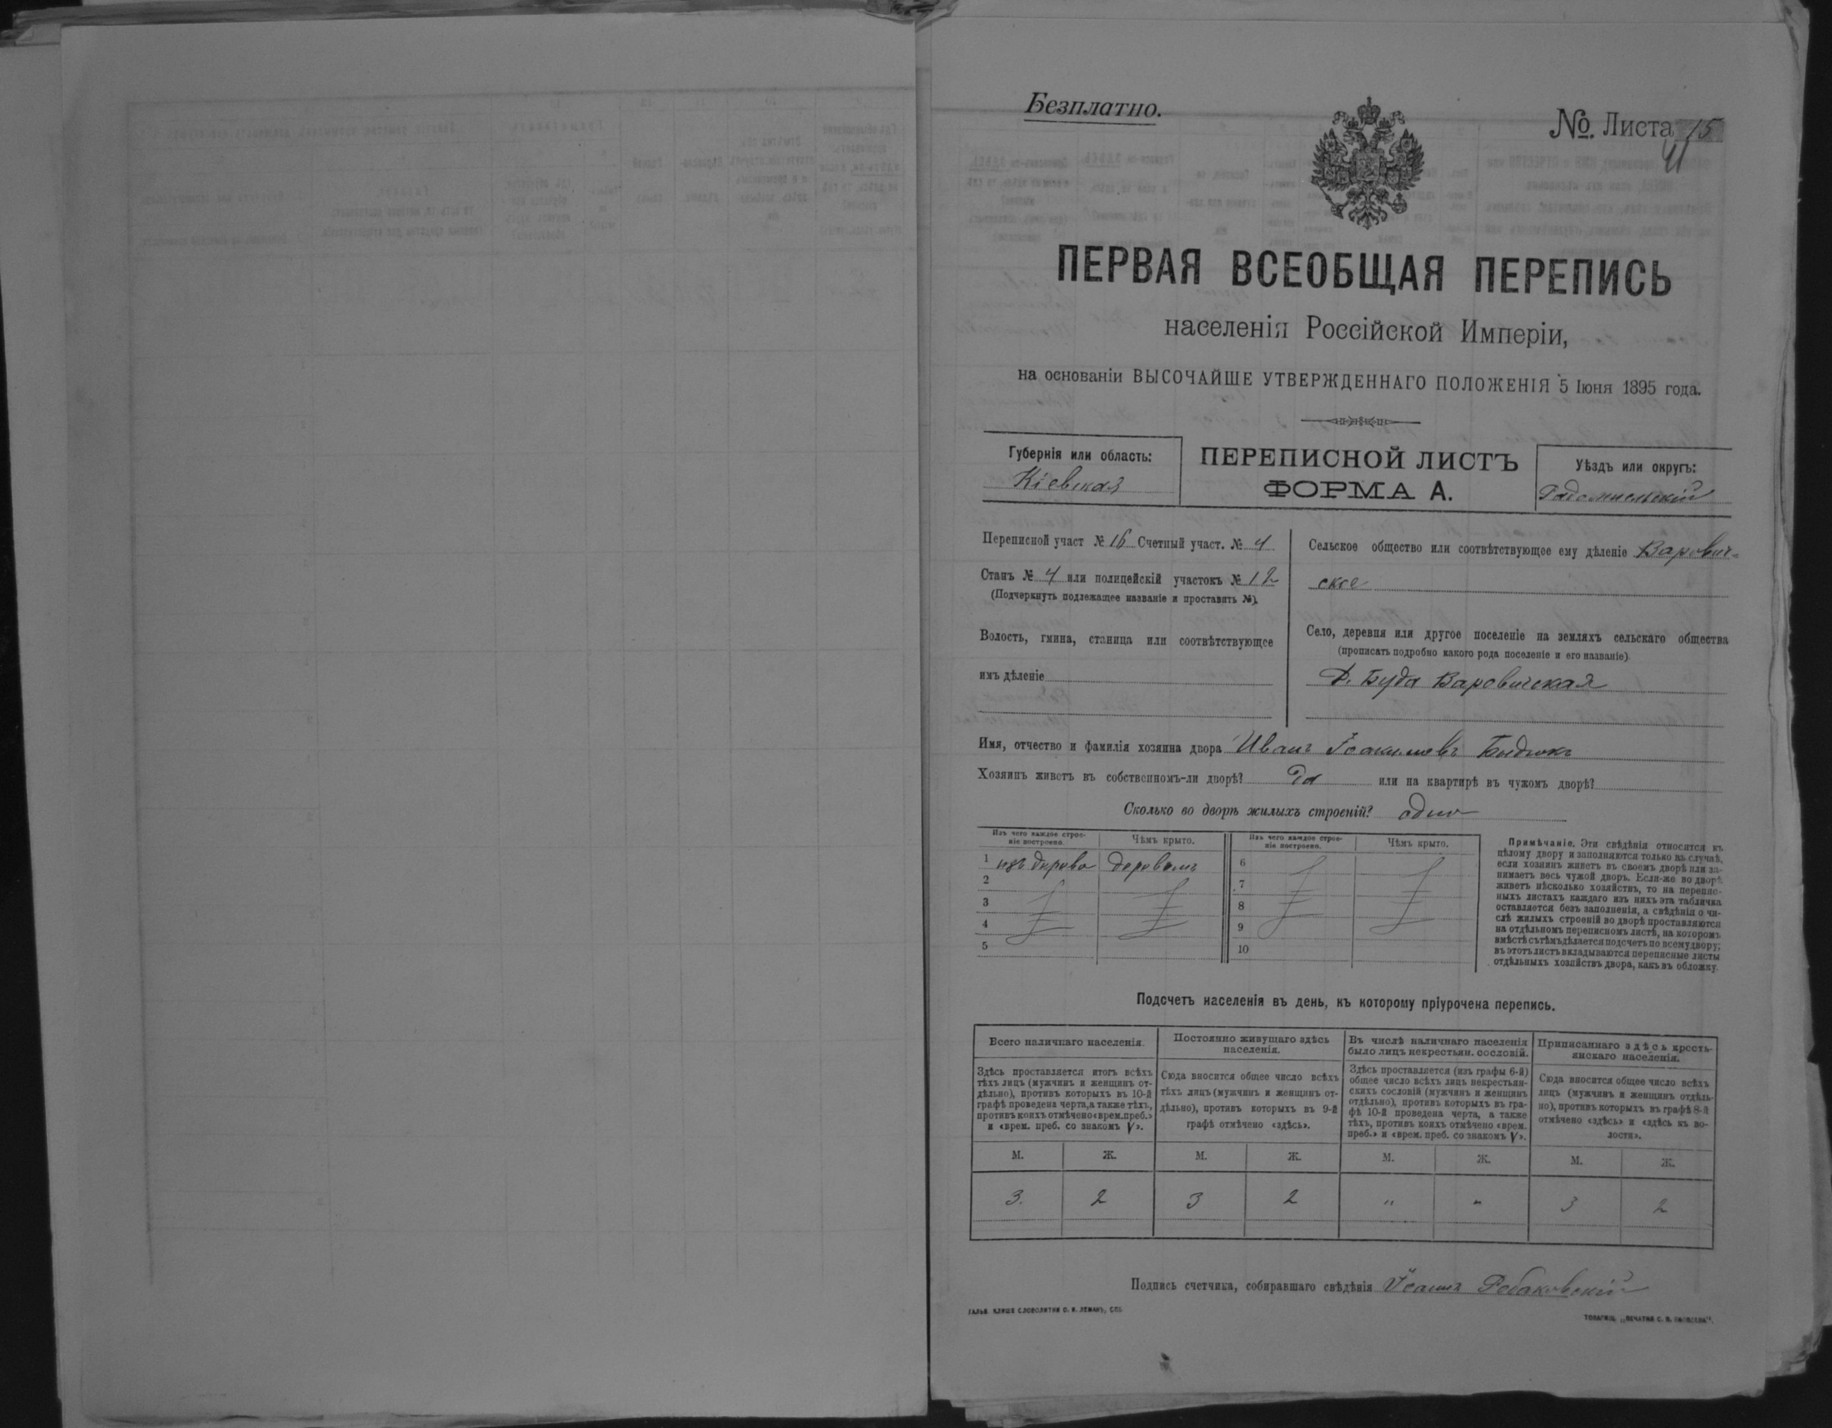 Безплатно.
№. Листа 15
ПЕРВАЯ ВСЕОБЩАЯ ПЕРЕПИСЬ
населенія Россійской Имперіи,
на основаніи ВЫСОЧАЙШЕ УТВЕРЖДЕННАГО ПОЛОЖЕНІЯ 5 Іюня 1895 года.
Губернія или область:
Кіевская
ПЕРЕПИСНОЙ ЛИСТЪ
ФОРМА А.
Уѣздъ или округъ:
Радомысльскій
Переписной участ № 16 Счетный участ. № 4
Станъ № 4 или полицейскій участокъ № 12
(Подчеркнуть подлежащее названіе и проставить №).
Волость, гмина, станица или соотвѣтствующее
имъ дѣленіе
Сельское общество или соотвѣтствующее ему дѣленіе Варович-
ское
Село, деревня или другое поселеніе на земляхъ сельскаго общества
(прописать подробно какого рода поселеніе и его названіе).
Д. Буда Варовичская
Имя, отчество и фамилія хозяина двора Иванъ Іоакимовъ
Хозяинъ живетъ въ собственномъ-ли дворѣ? Да или на квартирѣ въ чужомъ дворѣ?
Сколько во дворѣ жилыхъ строеній? одно
Изъ чего каждое строе-
ніе построено.
Чѣмъ крыто.
Изъ чего каждое строе-
ніе построено.
Чѣмъ крыто.
1 изъ дерева деревомъ 6
2 7
3 8
4 9
5 10
Примѣчаніе. Эти свѣдѣнія относятся къ
цѣлому двору и заполняются только въ случаѣ,
если хозяинъ живетъ въ своемъ дворѣ или за-
нимаетъ весь чужой дворъ. Если-же во дворѣ
живетъ нѣсколько хозяйствъ, то на перепис-
ныхъ листахъ каждаго изъ нихъ эта табличка
оставляется безъ заполненія, а свѣдѣнія о чи-
слѣ жилыхъ строеній во дворѣ проставляются
на отдѣльномъ переписномъ листѣ, на которомъ
вмѣстѣ съ тѣмъ дѣлается подсчетъ по всему двору;
въ этотъ листъ вкладываются переписные листы
отдѣльныхъ хозяйствъ двора, какъ въ обложку.
Подсчетъ населенія въ день, къ которому пріурочена перепись.
Всего наличнаго населенія.
Здѣсь проставляется итогъ всѣхъ
тѣхъ лицъ (мужчинъ и женщинъ от-
дѣльно), противъ которыхъ въ 10-й
графѣ проведена черта, а также тѣхъ,
противъ коихъ отмѣчено «врем. преб.»
и «врем. преб. со знакомъ V».
Постоянно живущаго здѣсь
населенія.
Сюда вносится общее число всѣхъ
тѣхъ лицъ (мужчинъ и женщинъ от-
дѣльно), противъ которыхъ въ 9-й
графѣ отмѣчено «здѣсь».
Въ числѣ наличнаго населенія
было лицъ некрестьян. сословій.
Здѣсь проставляется (изъ графы 6-й)
общее число всѣхъ лицъ некрестьян-
скихъ сословій (мужчинъ и женщинъ
отдѣльно), противъ которыхъ въ гра-
фѣ 10-й проведена черта, а также
тѣхъ, противъ коихъ отмѣчено «врем.
преб.» и «врем. преб. со знакомъ V».
Приписаннаго здѣсь кресть-
янскаго населенія.
Сюда вносится общее число всѣхъ
лицъ (мужчинъ и женщинъ отдѣль-
но), противъ которыхъ въ графѣ 8-й
отмѣчено «здѣсь» и «здѣсь къ во-
лости».
М. Ж. М. Ж. М. Ж. М. Ж.
3. 2 3 2 " " 3 2
Подпись счетчика, собиравшаго свѣдѣнія
ГАЛЬВ. КЛИШЕ СЛОВОЛИТНИ О. И. ЛЕМАНЪ, СПБ.